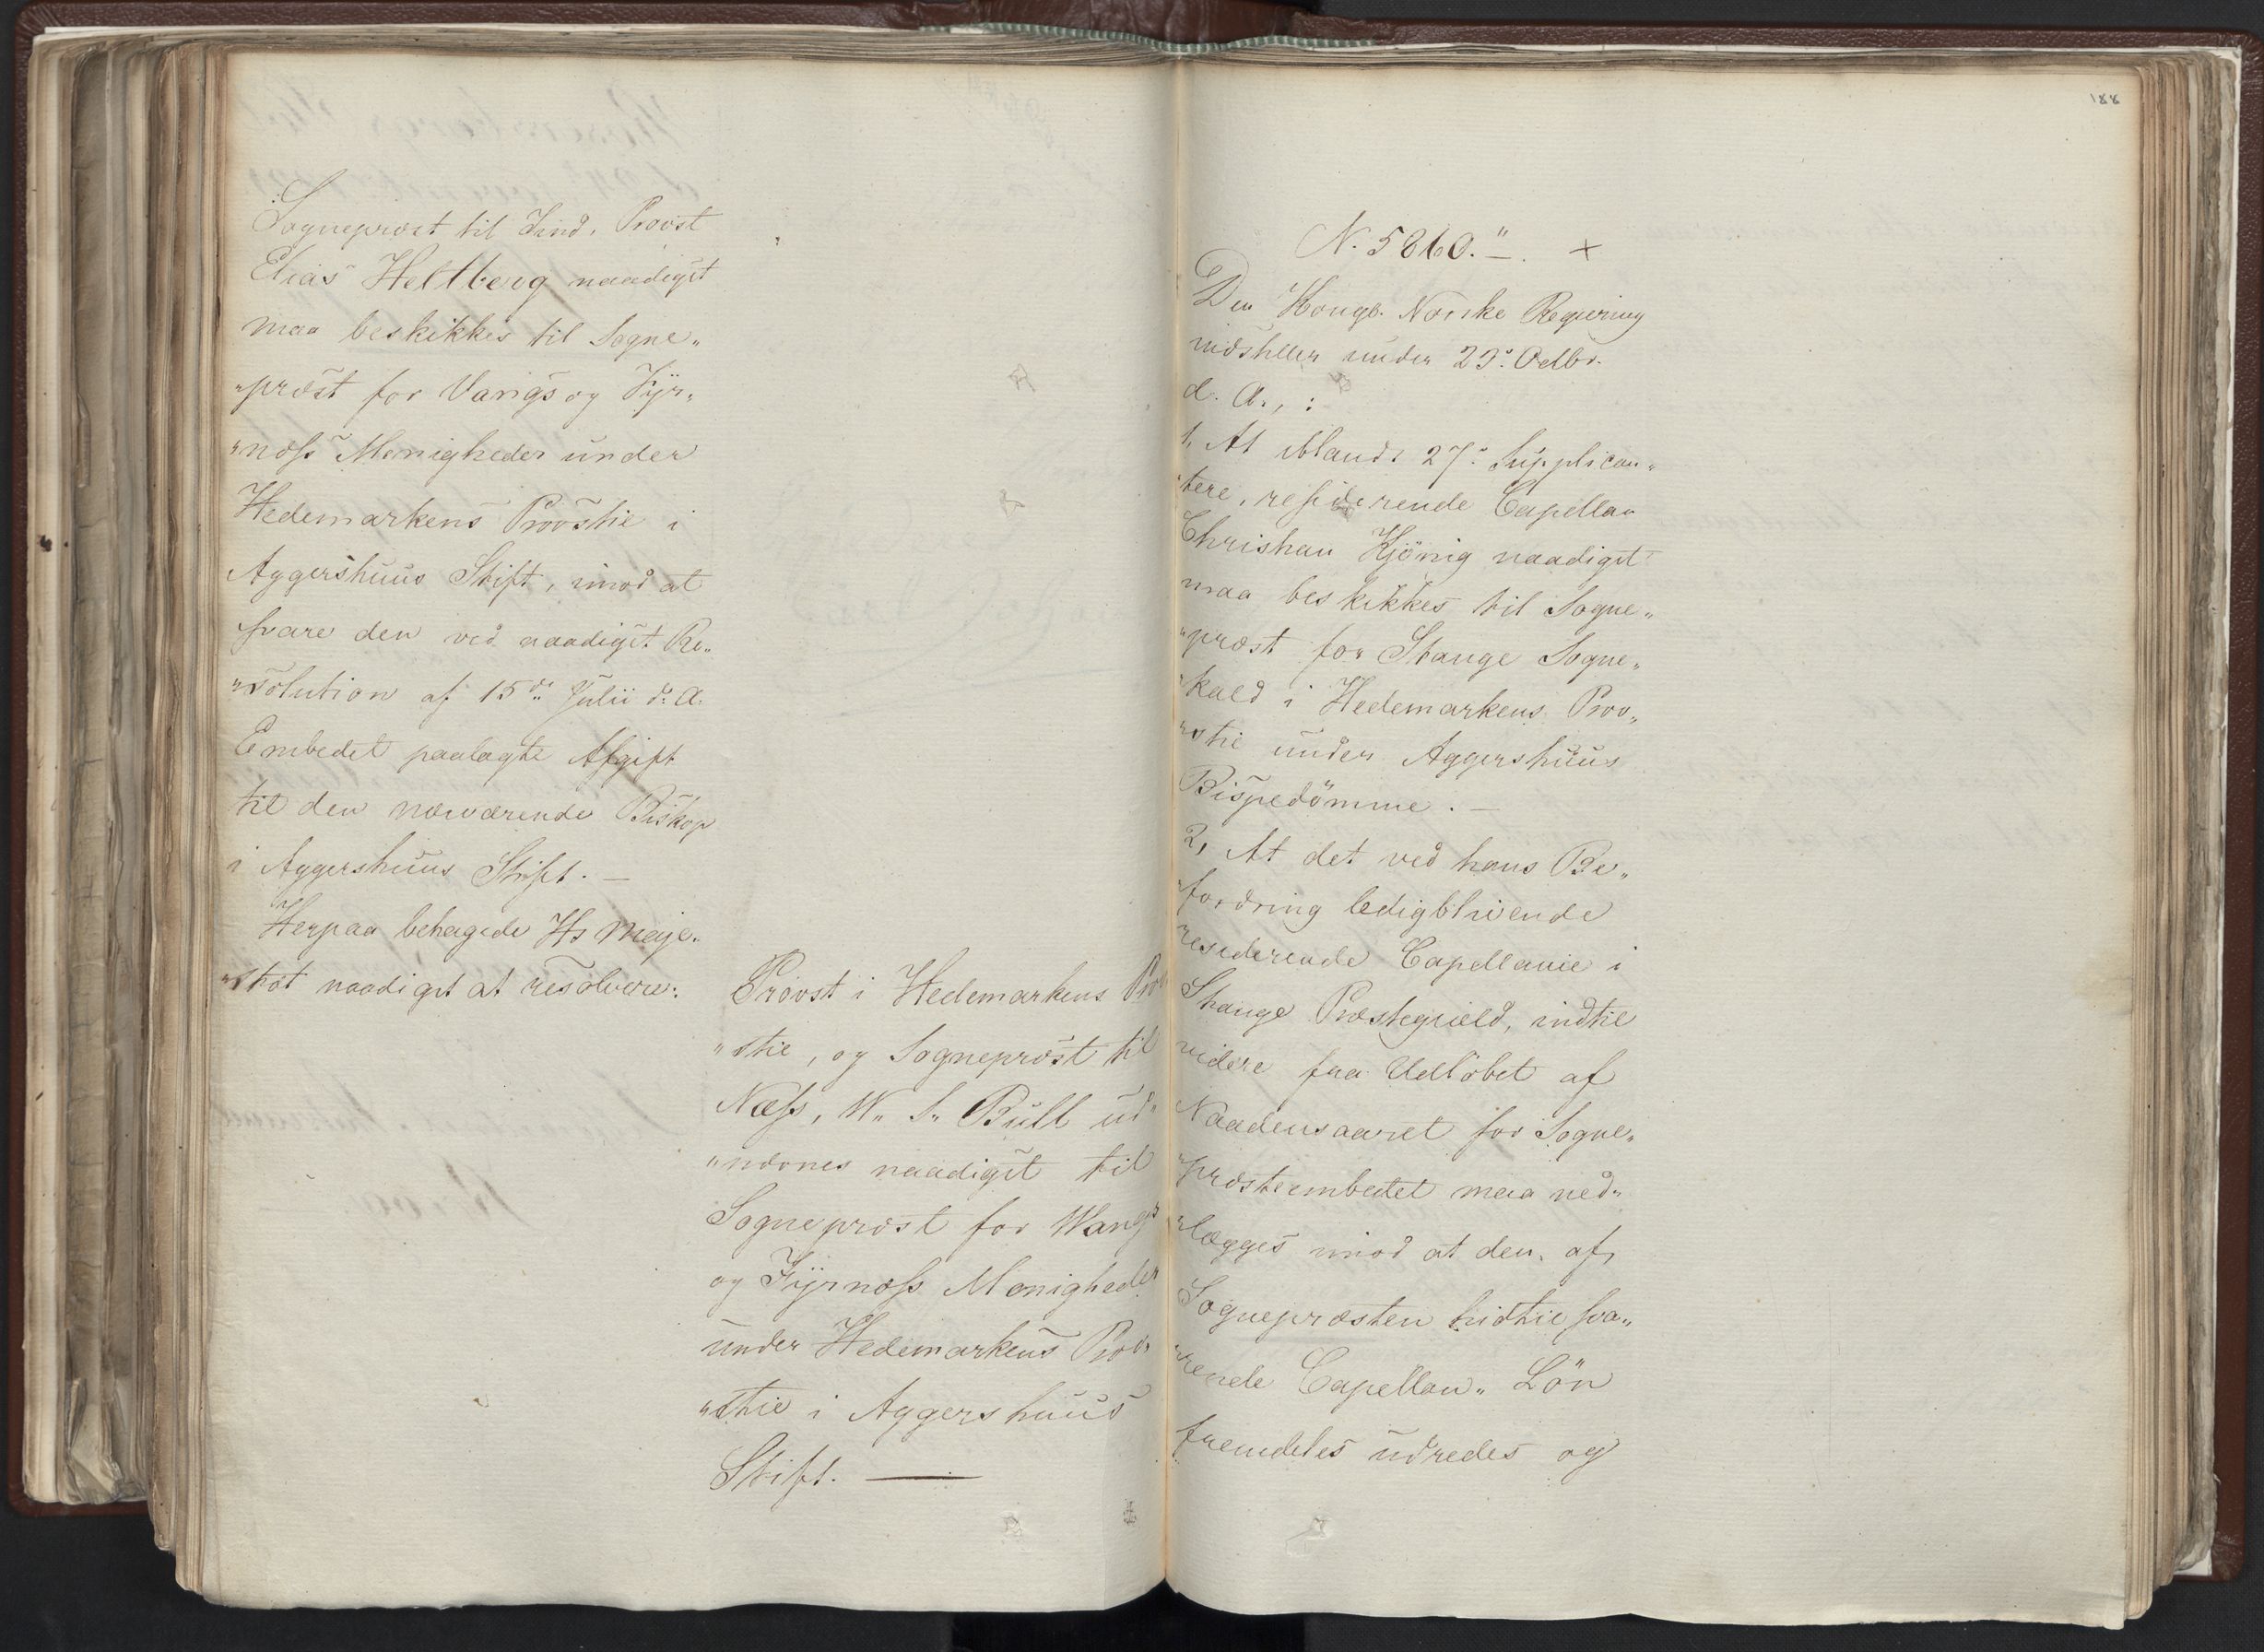 Sognepræst til Lind, Provst
Elias Heltberg naadigst
maa beskikkes til Sogne„
„præst for Vangs og Fÿr„
„næss Menigheder under
Hedemarkens Provstie i
Aggershuus Stift, imod at
svare den ved naadigst Re„
„solution af 15de Julii d. A.
Embedet paalagte Afgift
til den nærværende Biskop
i Aggershuus Stift. —
Herpaa behagede Hs Maje„
„stæt naadigst at resolvere:
Provst i Hedemarkens Pro„
„stie, og Sognepræst til
Næss, W. S. Bull ud„
„nævnes naadigst til
Sognepræst for Wangs
og Fÿrnæss Menigheder
under Hedemarkens Prov„
„stie i Aggershuus
Stift. —
188
N. 5860." —. ×
Den Kongl. Norske Regiering
indstiller under 29. Octbr.
d. A., :
1, At iblandt 27. Supplican„
„tere, residerende Capellan
Christian Kjönig naadigst
maa beskikkes til Sogne„
„præst for Stange Sogne„
„kald i Hedemarkens Prov„
„stie under Aggershuus
Bispedömme. —
2, At det ved hans Be„
„fordring ledigblivende
residerende Capellanie i
Stange Præstegield, indtil
videre fra Udløbet af
Naadensaaret for Sogne„
„præsteembedet maa ned„
„lægges imod at den, af
Sognepræsten hidtil sva„
„rende Capellan„ Lön
fremdeles udredes og